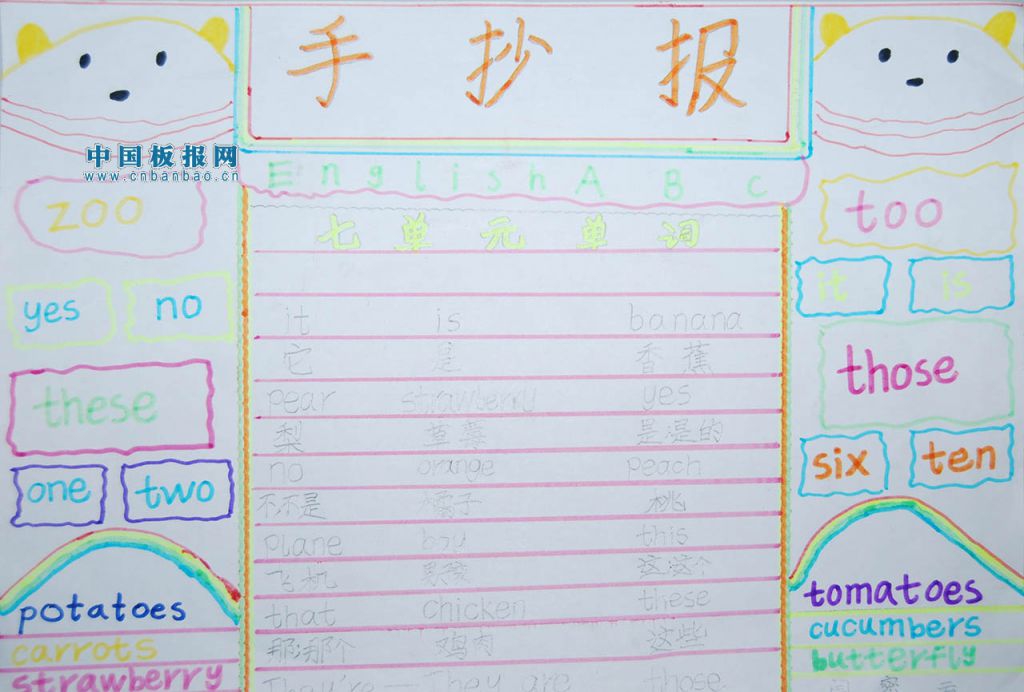 手抄报
中国板报网
www.cnbanbao.cn
English A B C
七单元单词
it is banana
它 是 香蕉
pear strawberry yes
梨 草莓 是是的
no orange peach
不不是 橘子 桃
plane boy this
飞机 男孩 这这个
that chicken these
那那个 鸡肉 这些
They're—They are those
zoo
yes no
these
one two
potatoes
carrots
strawberry
too
it is
those
six ten
tomatoes
cucumbers
butterfly